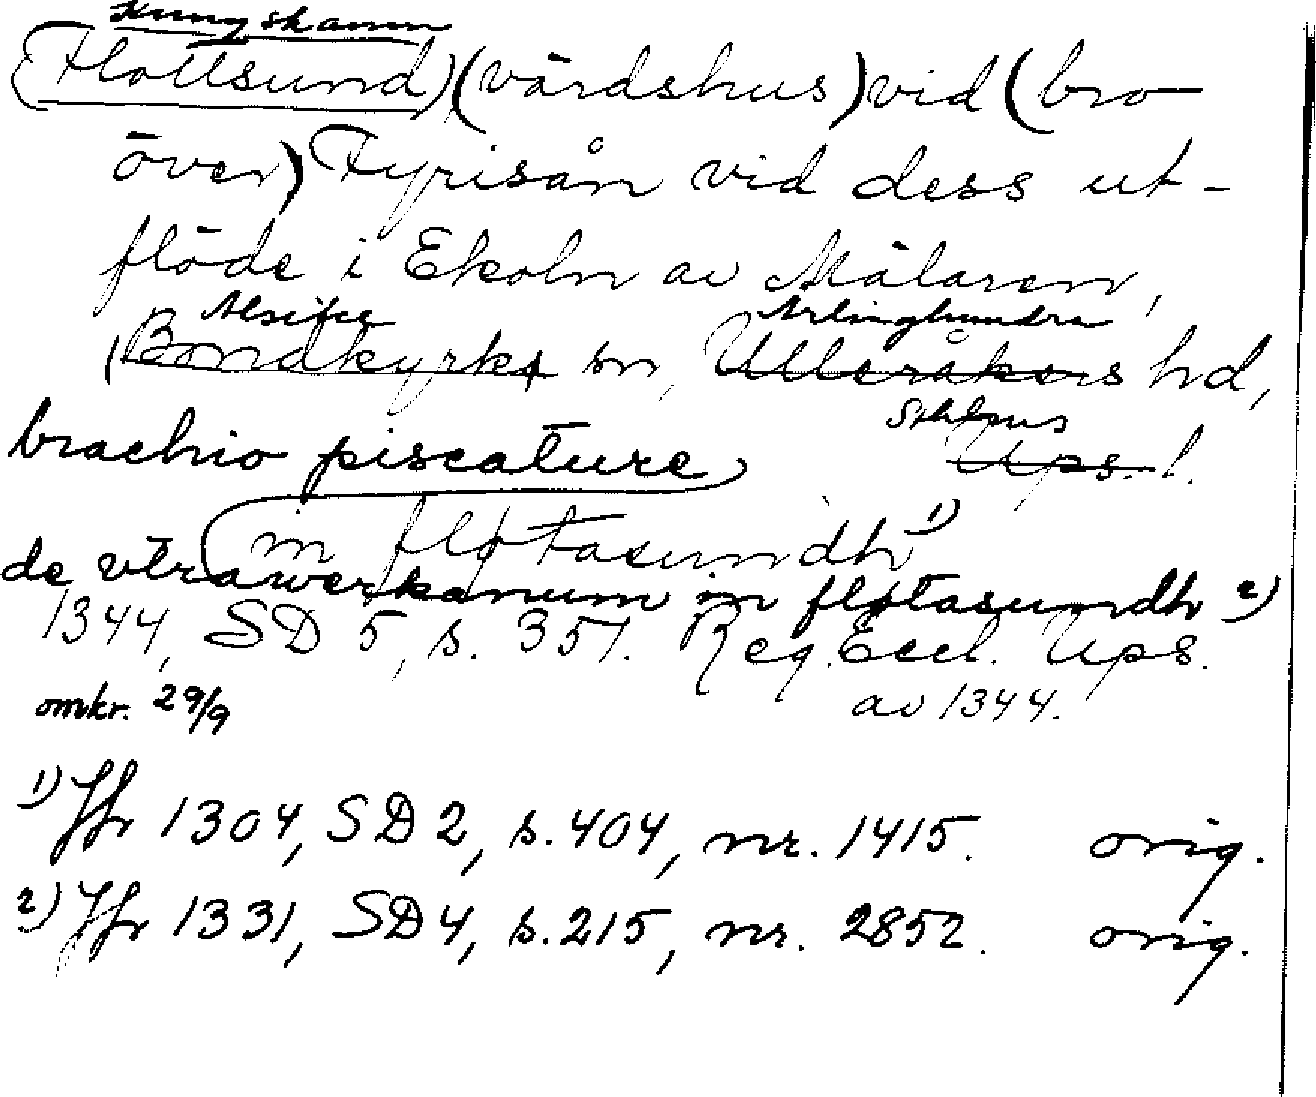 Kungshamn
(Flottsund) (värdshus) vid (bro
över) Fyrisån vid dess ut-
flöde i Ekoln av Mälaren,
Alsike Ärlinghundra
(Bondkyrko sn, Ulleråkers hd,
Sthlms
brachio piscature Ups. l.
in fløtasundh 1)
de vtrawerkanum in fløtasundh 2)
1344, SD 5, s. 351. Reg. Eccl. Ups.
omkr. 29/9 av 1344.
1) Jfr 1304, SD 2, s. 404, nr. 1415. orig.
2) Jfr 1331, SD 4, s. 215, nr. 2852. orig.